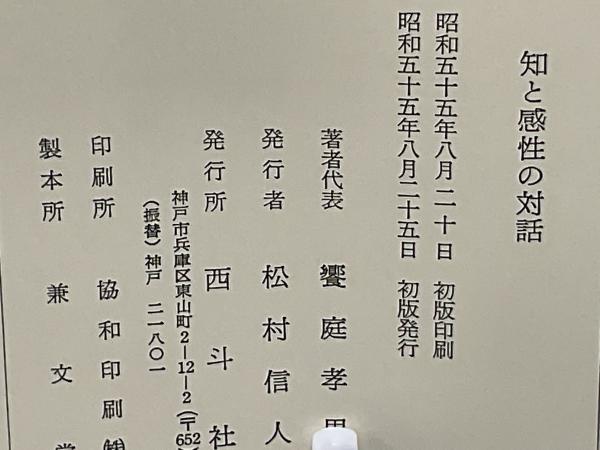 知と感性の対話
昭和五十五年八月二十日 初版印刷
昭和五十五年八月二十五日 初版発行
著者代表 饗庭孝
発行者 松村信人
発行所 西斗社
神戸市兵庫区東山町2－12－2（〒652
（振替）神戸 二一八〇一
印刷所 協和印刷㈱
製本所 兼文